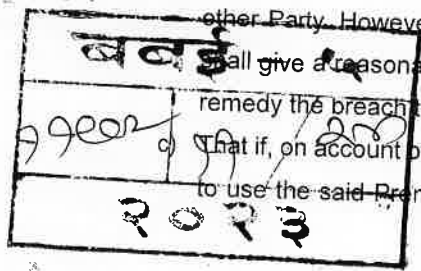 other Party. Howeve
बबई - ५
shall give a reasona
remedy the breach t
११९०२
c) That if, on account o
to use the said Prem
२०१३